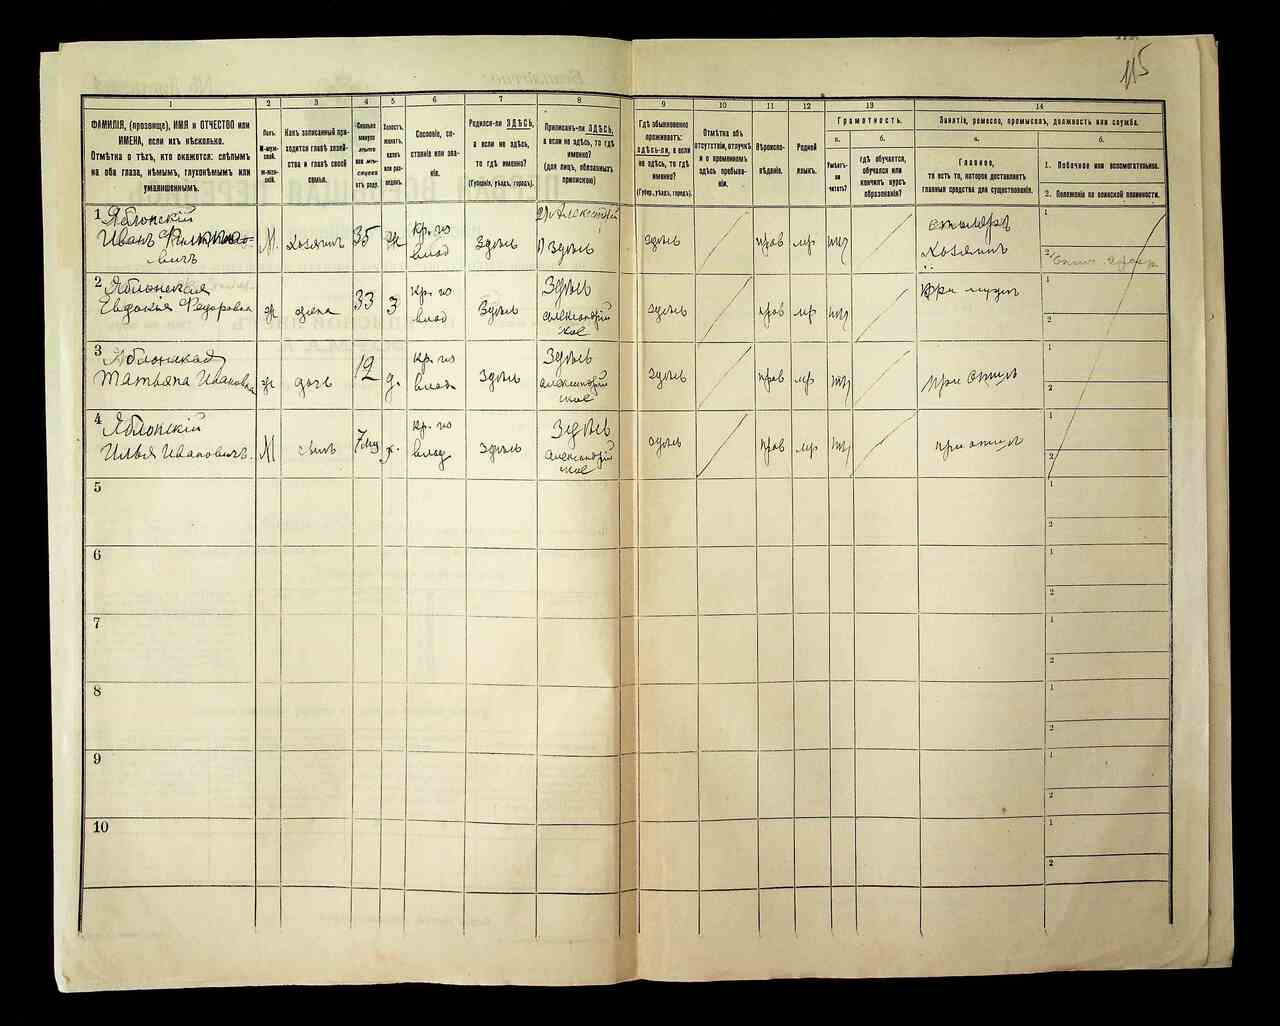 115
1
2
3
4
5
6
7
8
9
10
11
12
13
14
ФАМИЛІЯ, (прозвище), ИМЯ и ОТЧЕСТВО или
ИМЕНА, если ихъ нѣсколько.
Отмѣтка о тѣхъ, кто окажется: слѣпымъ
на оба глаза, нѣмымъ, глухонѣмымъ или
умалишеннымъ.
Полъ.
М-мужской.
Ж-женскій.
Какъ записанный при-
ходится главѣ хозяй-
ства и главѣ своей
семьи.
Сколько
минуло
лѣтъ
или мѣ-
сяцевъ
отъ роду.
Холостъ,
женатъ,
вдовъ
или раз-
веденъ.
Сословіе, со-
стояніе или зва-
ніе.
Родился-ли ЗДѢСЬ,
а если не здѣсь,
то гдѣ именно?
(Губернія, уѣздъ, городъ).
Приписанъ-ли ЗДѢСЬ,
а если не здѣсь, то гдѣ
именно?
(для лицъ, обязанныхъ
припискою)
Гдѣ обыкновенно
проживаетъ:
здѣсь-ли, а если
не здѣсь, то гдѣ
именно?
(Губер., уѣздъ, городъ).
Отмѣтка объ
отсутствіи, отлучкѣ
и о временномъ
здѣсь пребыва-
ніи.
Вѣроиспо-
вѣданіе.
Родной
языкъ.
Грамотность.
а.
б.
Умѣетъ-
ли
читать?
гдѣ обучается,
обучался или
кончилъ курсъ
образованія?
Занятіе, ремесло, промыселъ, должность или служба.
а.
б.
Главное,
то есть то, которое доставляетъ
главныя средства для существованія.
1. Побочное или вспомогательное.
2. Положеніе по воинской повинности.
1 Яблонскій
Иванъ
вичъ
М.
хозяинъ
35
ж
кр. го
влад
Здѣсь
1) Здѣсь
здѣсь
прав
мр
хозяинъ
1
2
2 Яблонская
Евдокія Федоровна
ж
жена
33
З
кр. го
влад
Здѣсь
Здѣсь
александрій
ское
здѣсь
прав
мр
при мужѣ
1
2
3 Яблонская
Татьяна Ивановна
ж
дочь
12
д.
кр. го
влад
Здѣсь
Здѣсь
александрій
ское
здѣсь
прав
мр
при отцѣ
1
2
4 Яблонскій
Илья Ивановичъ.
М
сынъ
х.
кр. го
влад
Здѣсь
Здѣсь
александрій
ское
здѣсь
прав
мр
при отцѣ
1
2
5
1
2
6
1
2
7
1
2
8
1
2
9
1
2
10
1
2